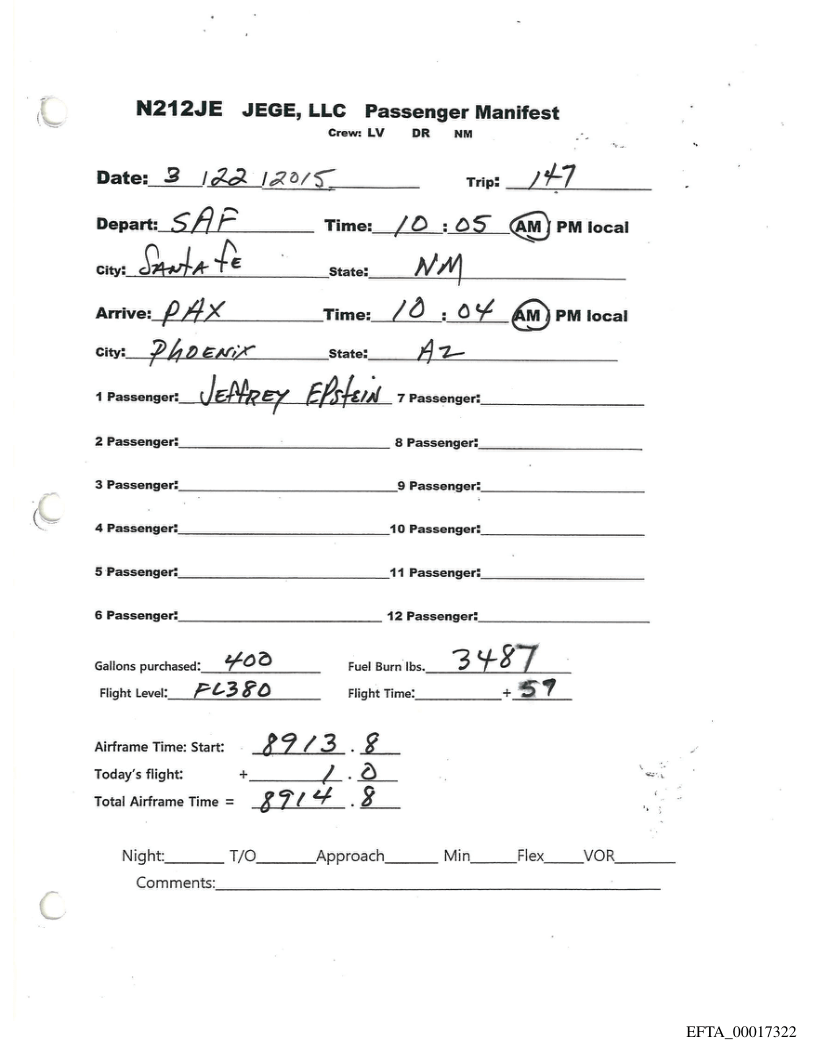 N212JE JEGE, LLC Passenger Manifest
Crew: LV DR NM
Date: 3 / 22 / 2015 Trip: 147
Depart: SAF Time: 10 : 05 AM PM local
City: SANTA FE State: NM
Arrive: PAX Time: 10 : 04 AM PM local
City: PHOENIX State: AZ
1 Passenger: JEFFREY EPSTEIN 7 Passenger:
2 Passenger: 8 Passenger:
3 Passenger: 9 Passenger:
4 Passenger: 10 Passenger:
5 Passenger: 11 Passenger:
6 Passenger: 12 Passenger:
Gallons purchased: 400 Fuel Burn lbs. 3487
Flight Level: FL380 Flight Time: + 59
Airframe Time: Start: 8913 . 8
Today's flight: + 1 . 0
Total Airframe Time = 8914 . 8
Night: T/O Approach Min Flex VOR
Comments:
EFTA_00017322